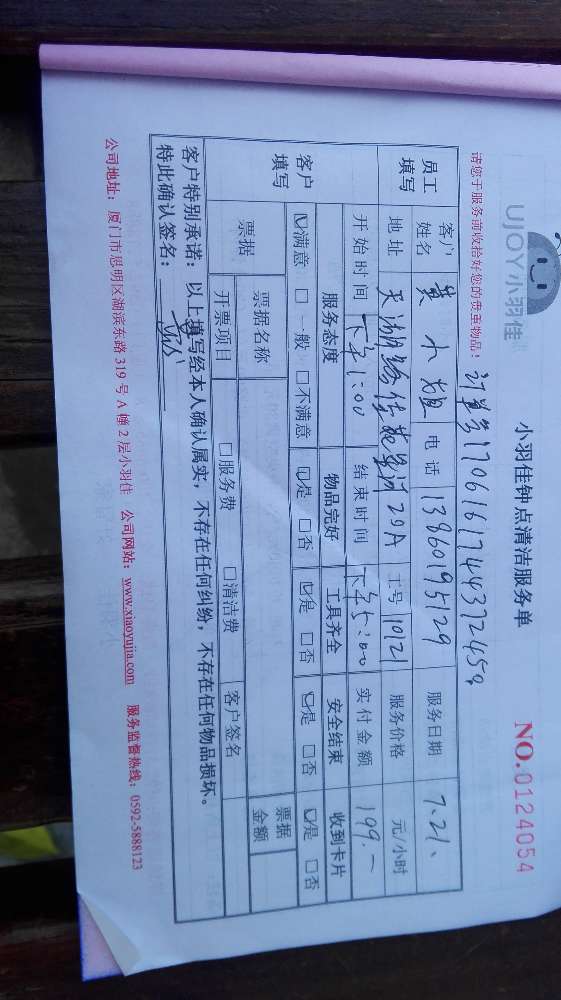 UJOY小羽佳
小羽佳钟点清洁服务单
NO.0124054
请您于服务前收拾好您的贵重物品！
订单号17061617443724509
员工填写
客户姓名 黄小姐 电话 13860195129 服务日期 7.21.
地址 天湖路佳苑星河29A 工号 10121 服务价格 元/小时
开始时间 下午1:00 结束时间 下午5:00 实付金额 199.—
客户填写
服务态度 物品完好 工具齐全 安全结束 收到卡片
☑满意 □一般 □不满意 ☑是 □否 ☑是 □否 ☑是 □否 ☑是 □否
票据 票据名称 票据金额
开票项目 □服务费 □清洁费 客户签名
客户特别承诺：以上填写经本人确认属实，不存在任何纠纷，不存在任何物品损坏。
特此确认签名：
公司地址：厦门市思明区湖滨东路319号A幢2层小羽佳 公司网站：www.xiaoyujia.com 服务监督热线：0592-5888123